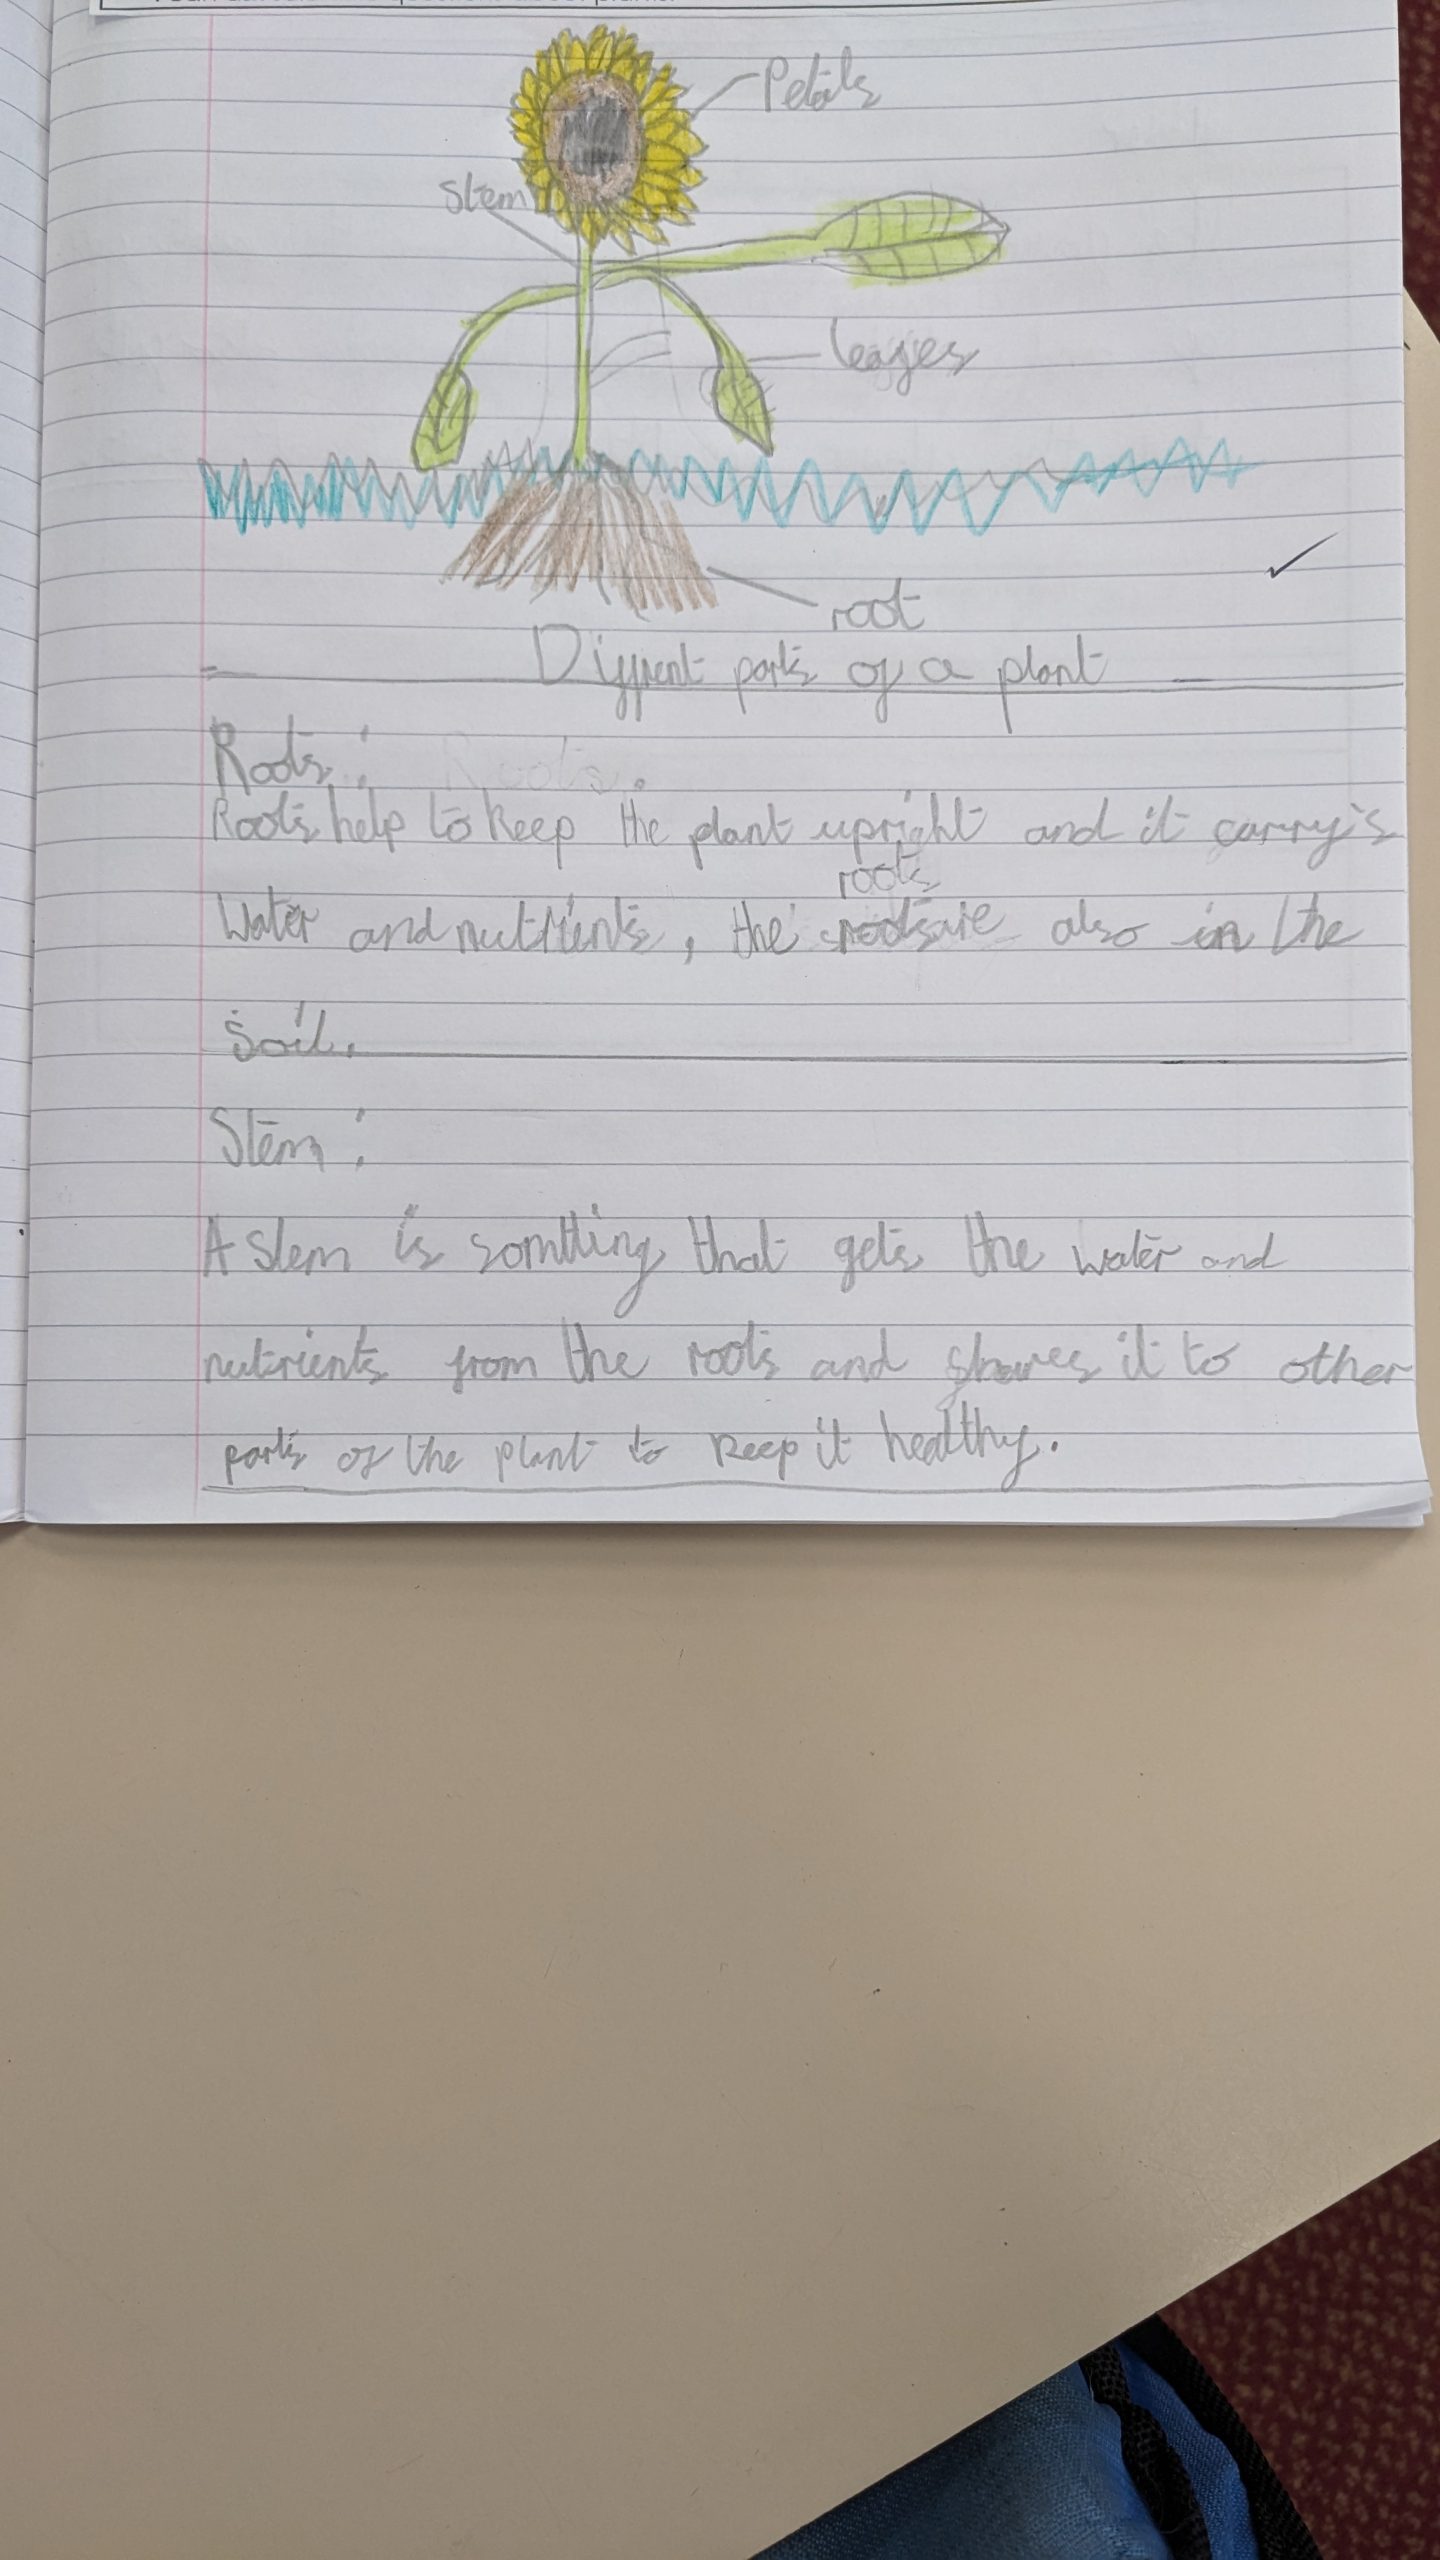 Petals
Stem
leaves
root
Diffrent parts of a plant
Roots: Roots.
Roots help to keep the plant upright and it carry's
roots
Water and nutrients, the are also in the
Soil.
Stem:
A stem is somthing that gets the water and
nutrients from the roots and shares it to other
parts of the plant to keep it healthy.